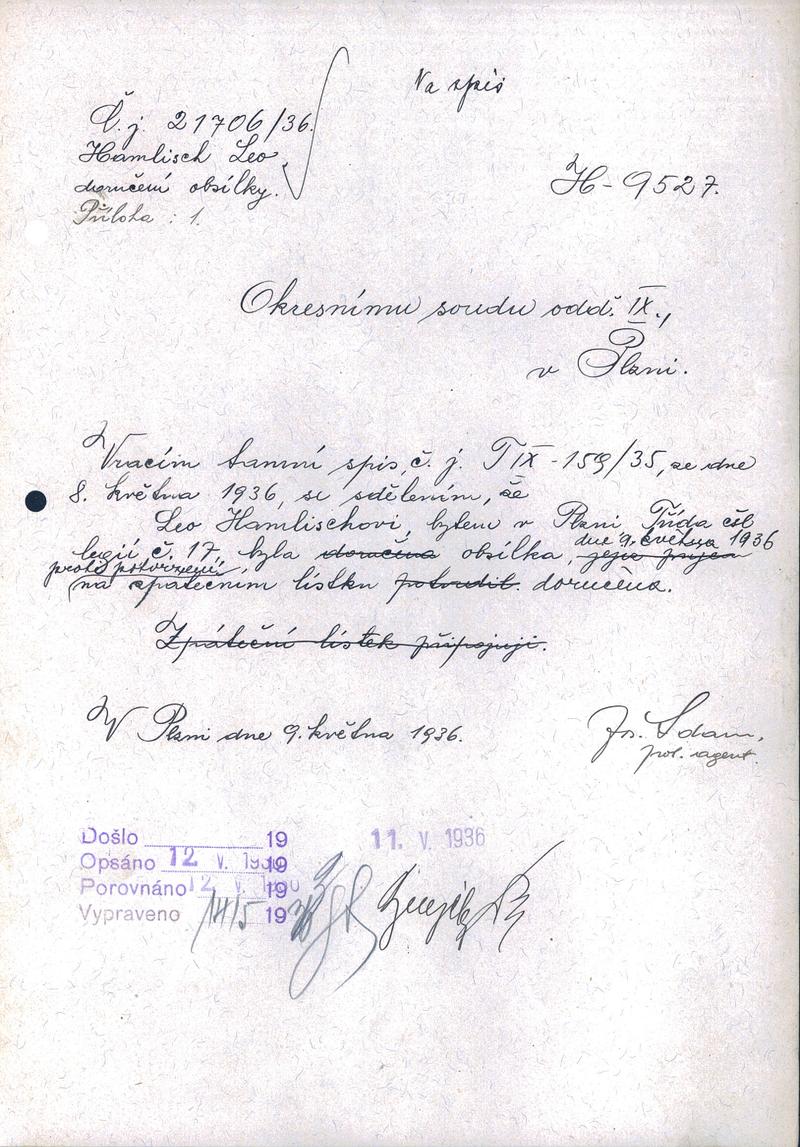 Na spis
Č. j. 21706/36.
Hamlisch Leo
doručení obsílky.
Příloha : 1.
H-9527.
Okresnímu soudu odd. IX.,
v Plzni.
Vracím tamní spis, č. j. T IX-159/35, ze dne
8. května 1936, se sdělením, že
Leo Hamlischovi, bytem v Plzni Třída čsl
legií č. 17, byla doručena obsílka, jejíž příjem dne 9. května 1936
proti potvrzení
na zpátečním lístku potvrdil. doručena.
Zpáteční lístek připojuji.
V Plzni dne 9. května 1936.
Adam,
pol. agent.
Došlo 19
11. V. 1936
Opsáno 12. V. 1936 19
Porovnáno 12. V. 19
Vypraveno 14/5 19